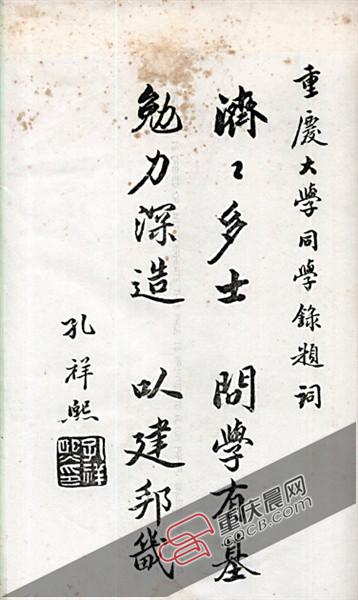 重慶大學同學錄題詞
濟〻多士 問學有基
勉力深造 以建邦畿
孔祥熙
孔祥熙印
重庆晨网
CQCB.COM